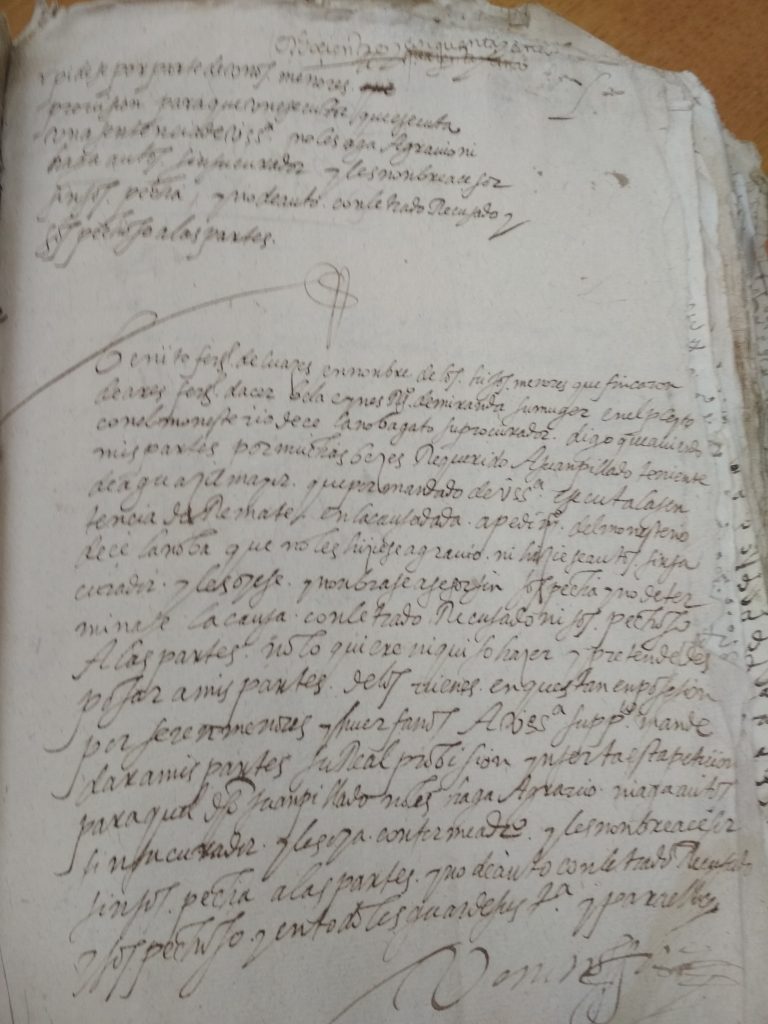 pidese por parte de unos menores
provision para que un executor que executa
una sentencia de vss.ª no les aga Agravio ni
haga autos sin su curador y les nonbre acesor
sin sos pecha, y no de auto con letrado Recusado y
sos pechoso a las partes.
Benito frrs. de en nonbre de los hijos menores que fincaron
de ares frrs. da cer bela e ynes Rs. de miranda su muger en el pleyto
con el monesterio de ce lanoba gato su procurador. digo que aviendo
mis partes por muchas bezes Requerido A Juan pillado teniente
de aguazil mayor. que por mandado de vss.ª executa la sen
tencia de Remate en la causa dada. a pedim.º del monesterio
de ce lanoba que no les hiziese agravio. ni hiziese autos sin su
curador. y les oyese. y nonbrase asesor sin sos pecha y no deter
minase la causa. con letrado Recusado ni sos pechoso
A las partes. no lo quiere ni quiso hazer y pretende des
posar a mis partes. de los vienes. en que estan en posesion
por seren menores y huerfanos A vss.ª supp.co mande
dar a mis partes su Real probision ynserta esta peticion
para quel dho Juan pillado no les haga Agravio. ni aga autos
sin su curador. y les oya. conforme a dr.º y les nonbre acesor
sin sos pecha a las partes. y no de auto con letrado Recusado
y sos pechoso. y en todo les guarde su Js.ª y para ello